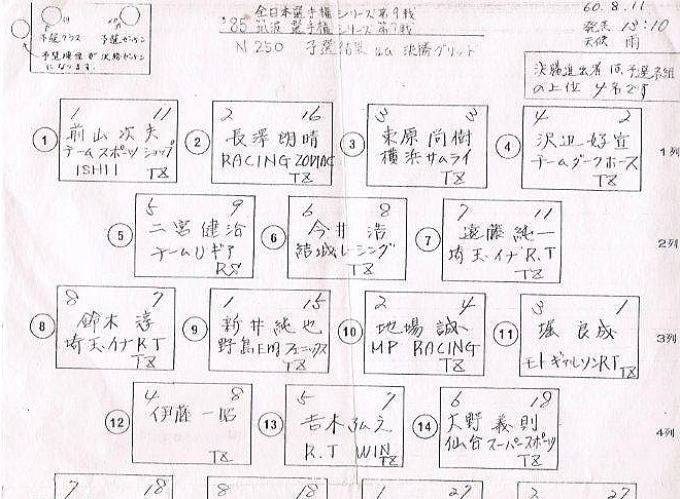 60. 8. 11
全日本選手権シリーズ第9戦
'85 筑波 選手権シリーズ第7戦
発表 13:10
天候 雨
N 250 予選結果 決勝グリッド
予選クラス 予選ゼッケン
予選順位が決勝ゼッケン
になります。
決勝進出者は、予選各組
の上位 4名です
1 11
① 前山次夫
チームスポーツショップ
ISHII TZ
2 16
② 長澤朗晴
RACING ZODIAC
TZ
3 3
③ 東原尚樹
横浜サムライ
TZ
4 2
④ 沢辺好宣
チームダークホース
TZ
1列
5 9
⑤ 二宮健治
チームUギア
RS
6 8
⑥ 今井浩
結城レーシング
TZ
7 11
⑦ 遠藤純一
埼玉イナR.T
TZ
8 7
⑧ 鈴木淳
埼玉イナRT
TZ
1 15
⑨ 新井純也
野島E時フェニックス
TZ
2 4
⑩ 地場誠
MP RACING
TZ
3 1
⑪ 堀良成
モトギャルソンRT TZ
3列
4 8
⑫ 伊藤一昭
TZ
5 7
⑬ 吉木弘之
R.T WIN TZ
6 18
⑭ 大野義則
仙台スーパースポーツ
TZ
4列
7 18
8 18
1 27
2 27